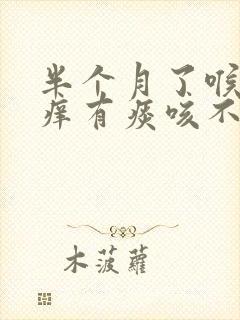 半个月了喉
痒有痰咳不
木菠蘿